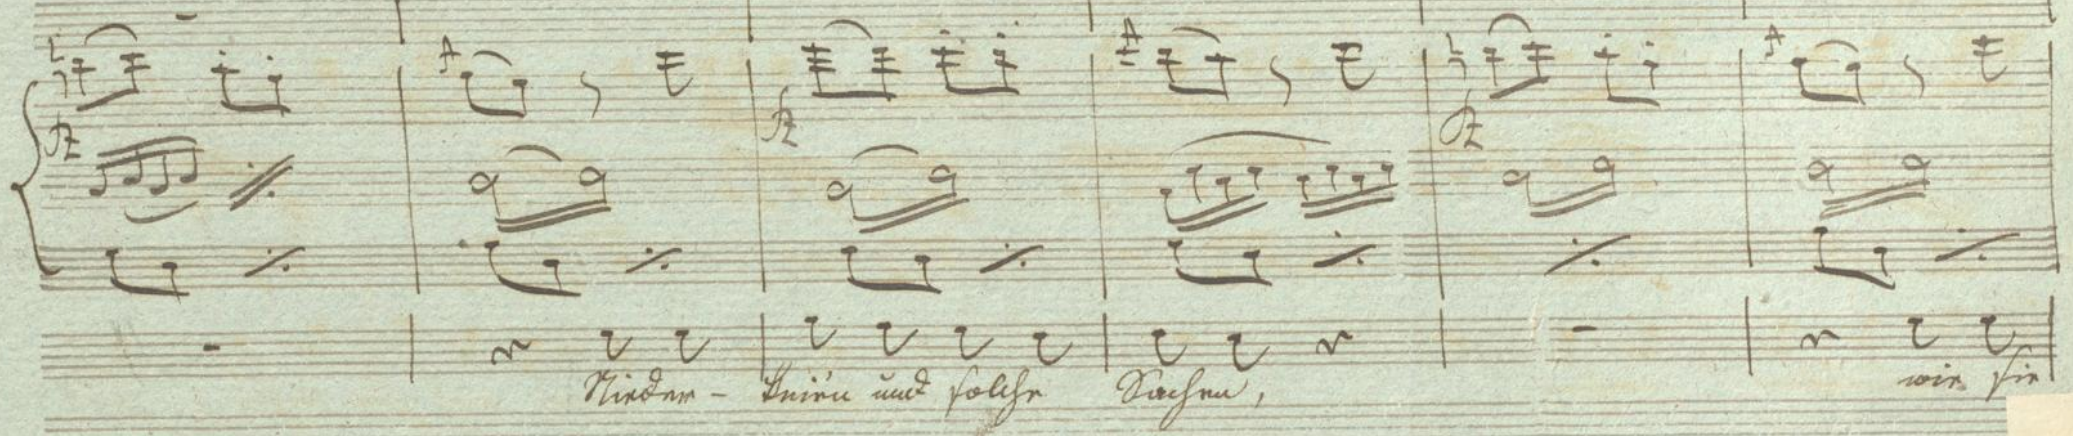 Nieder - knien und solche Sachen, wie sie